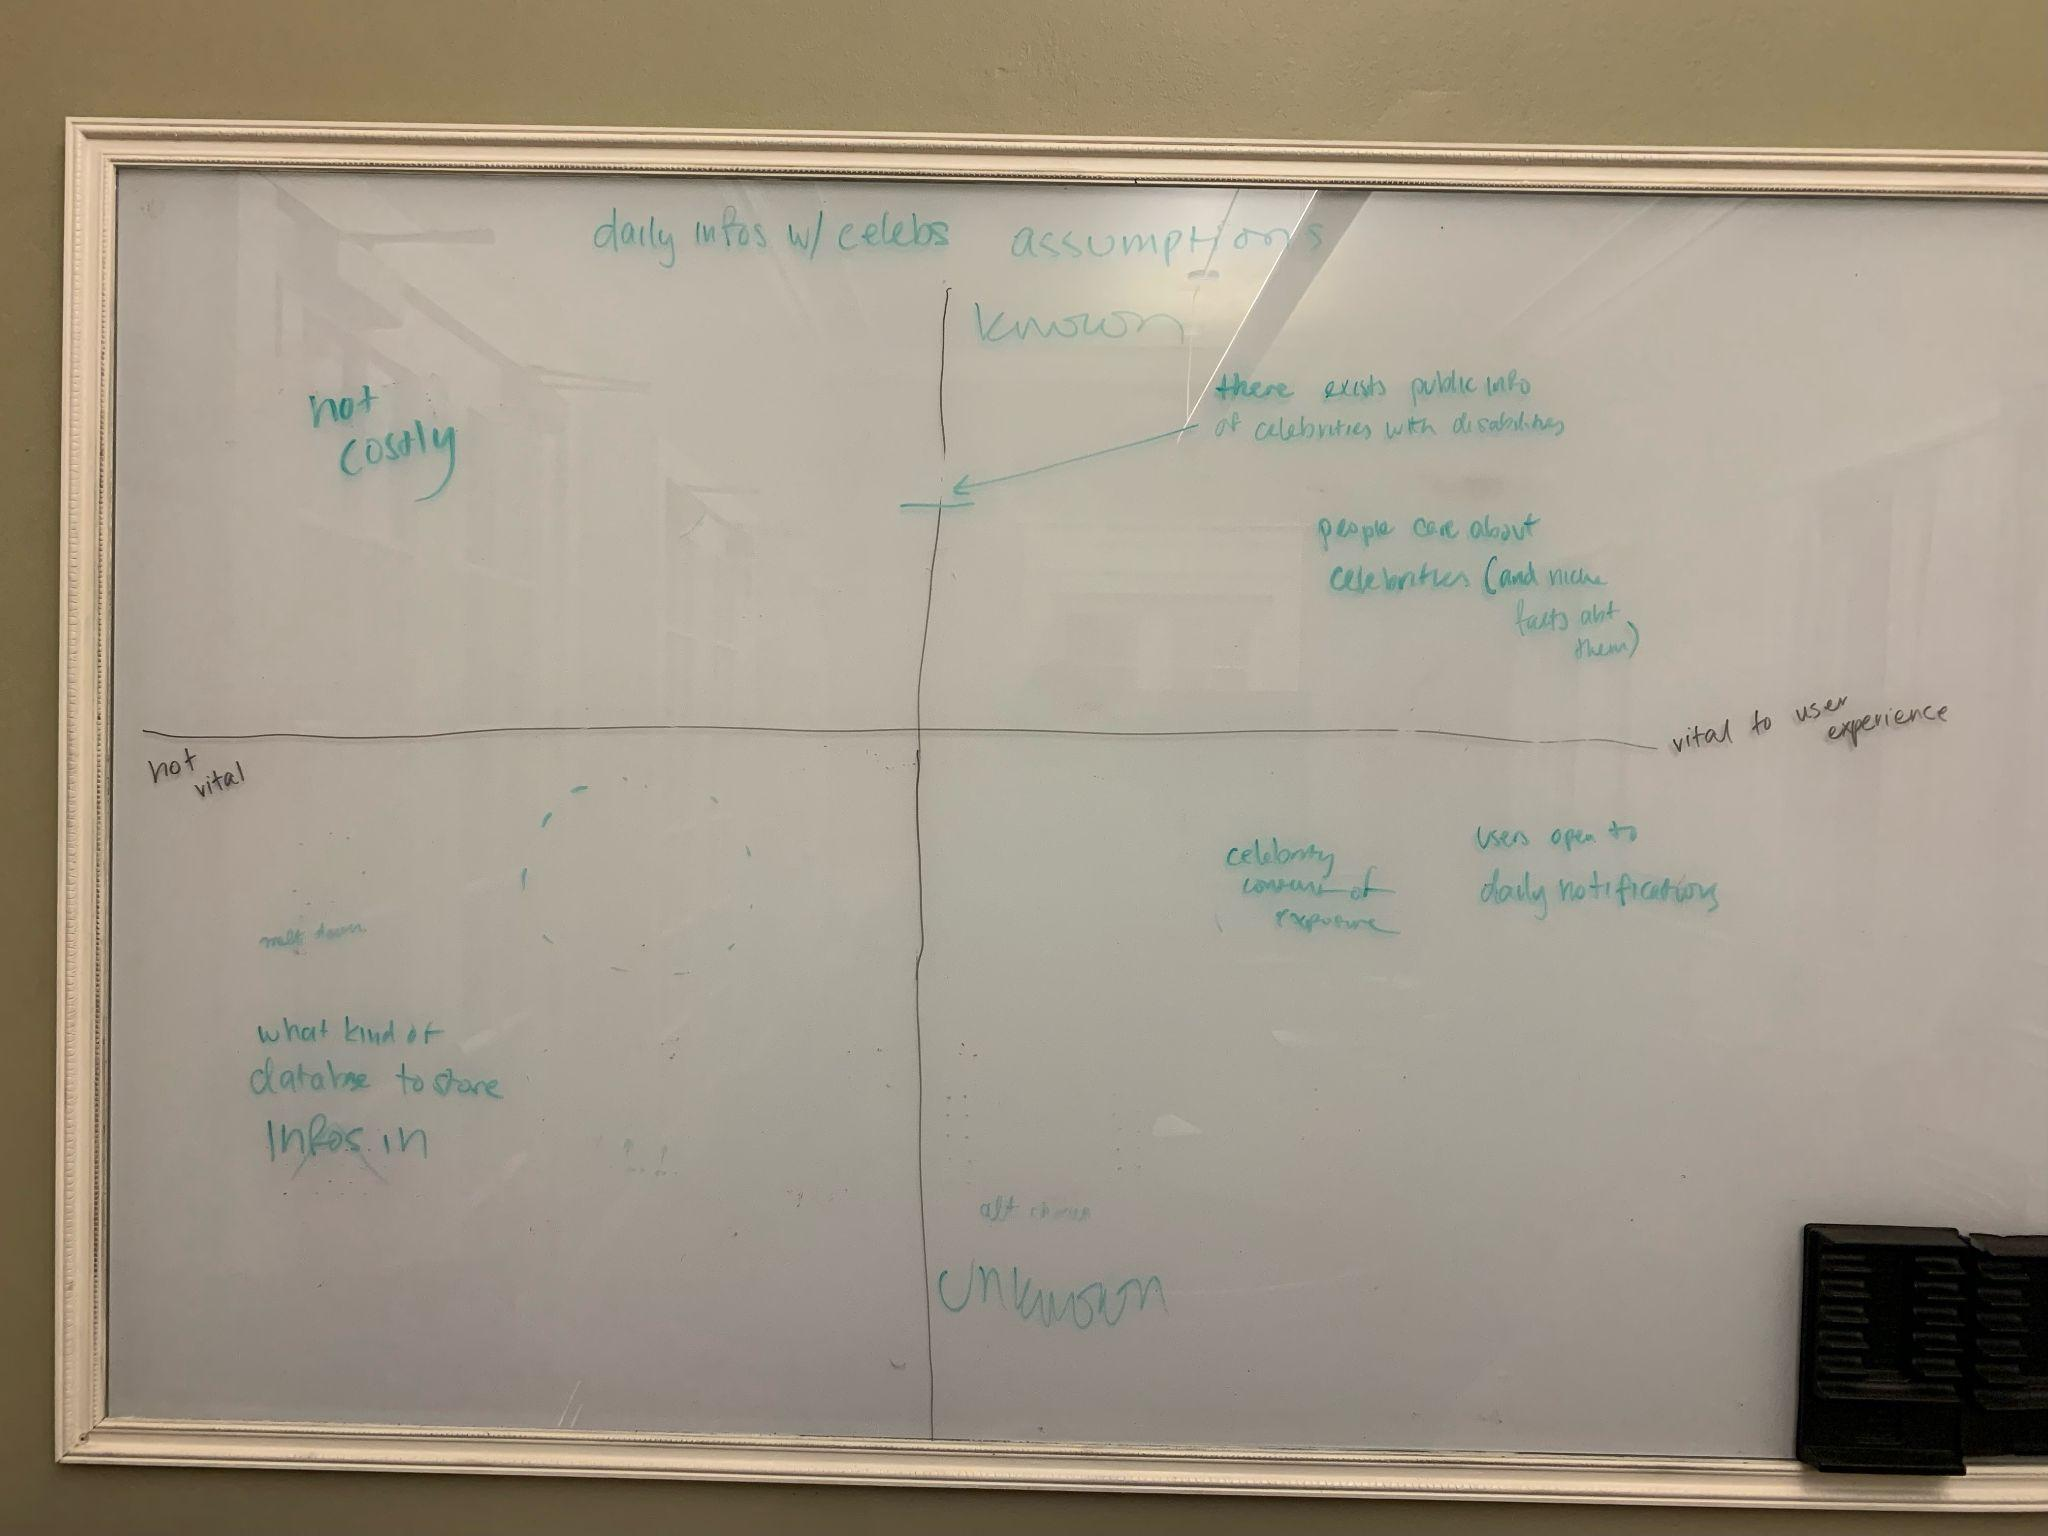 daily infos w/ celebs assumptions
known
not
costly
there exists public info
of celebrities with disabilities
people care about
celebrities (and niche
facts abt
them)
vital to user
experience
not
vital
celebrity
consent of
exposure
users open to
daily notifications
melt down
what kind of
database to store
infos in
alt
unknown